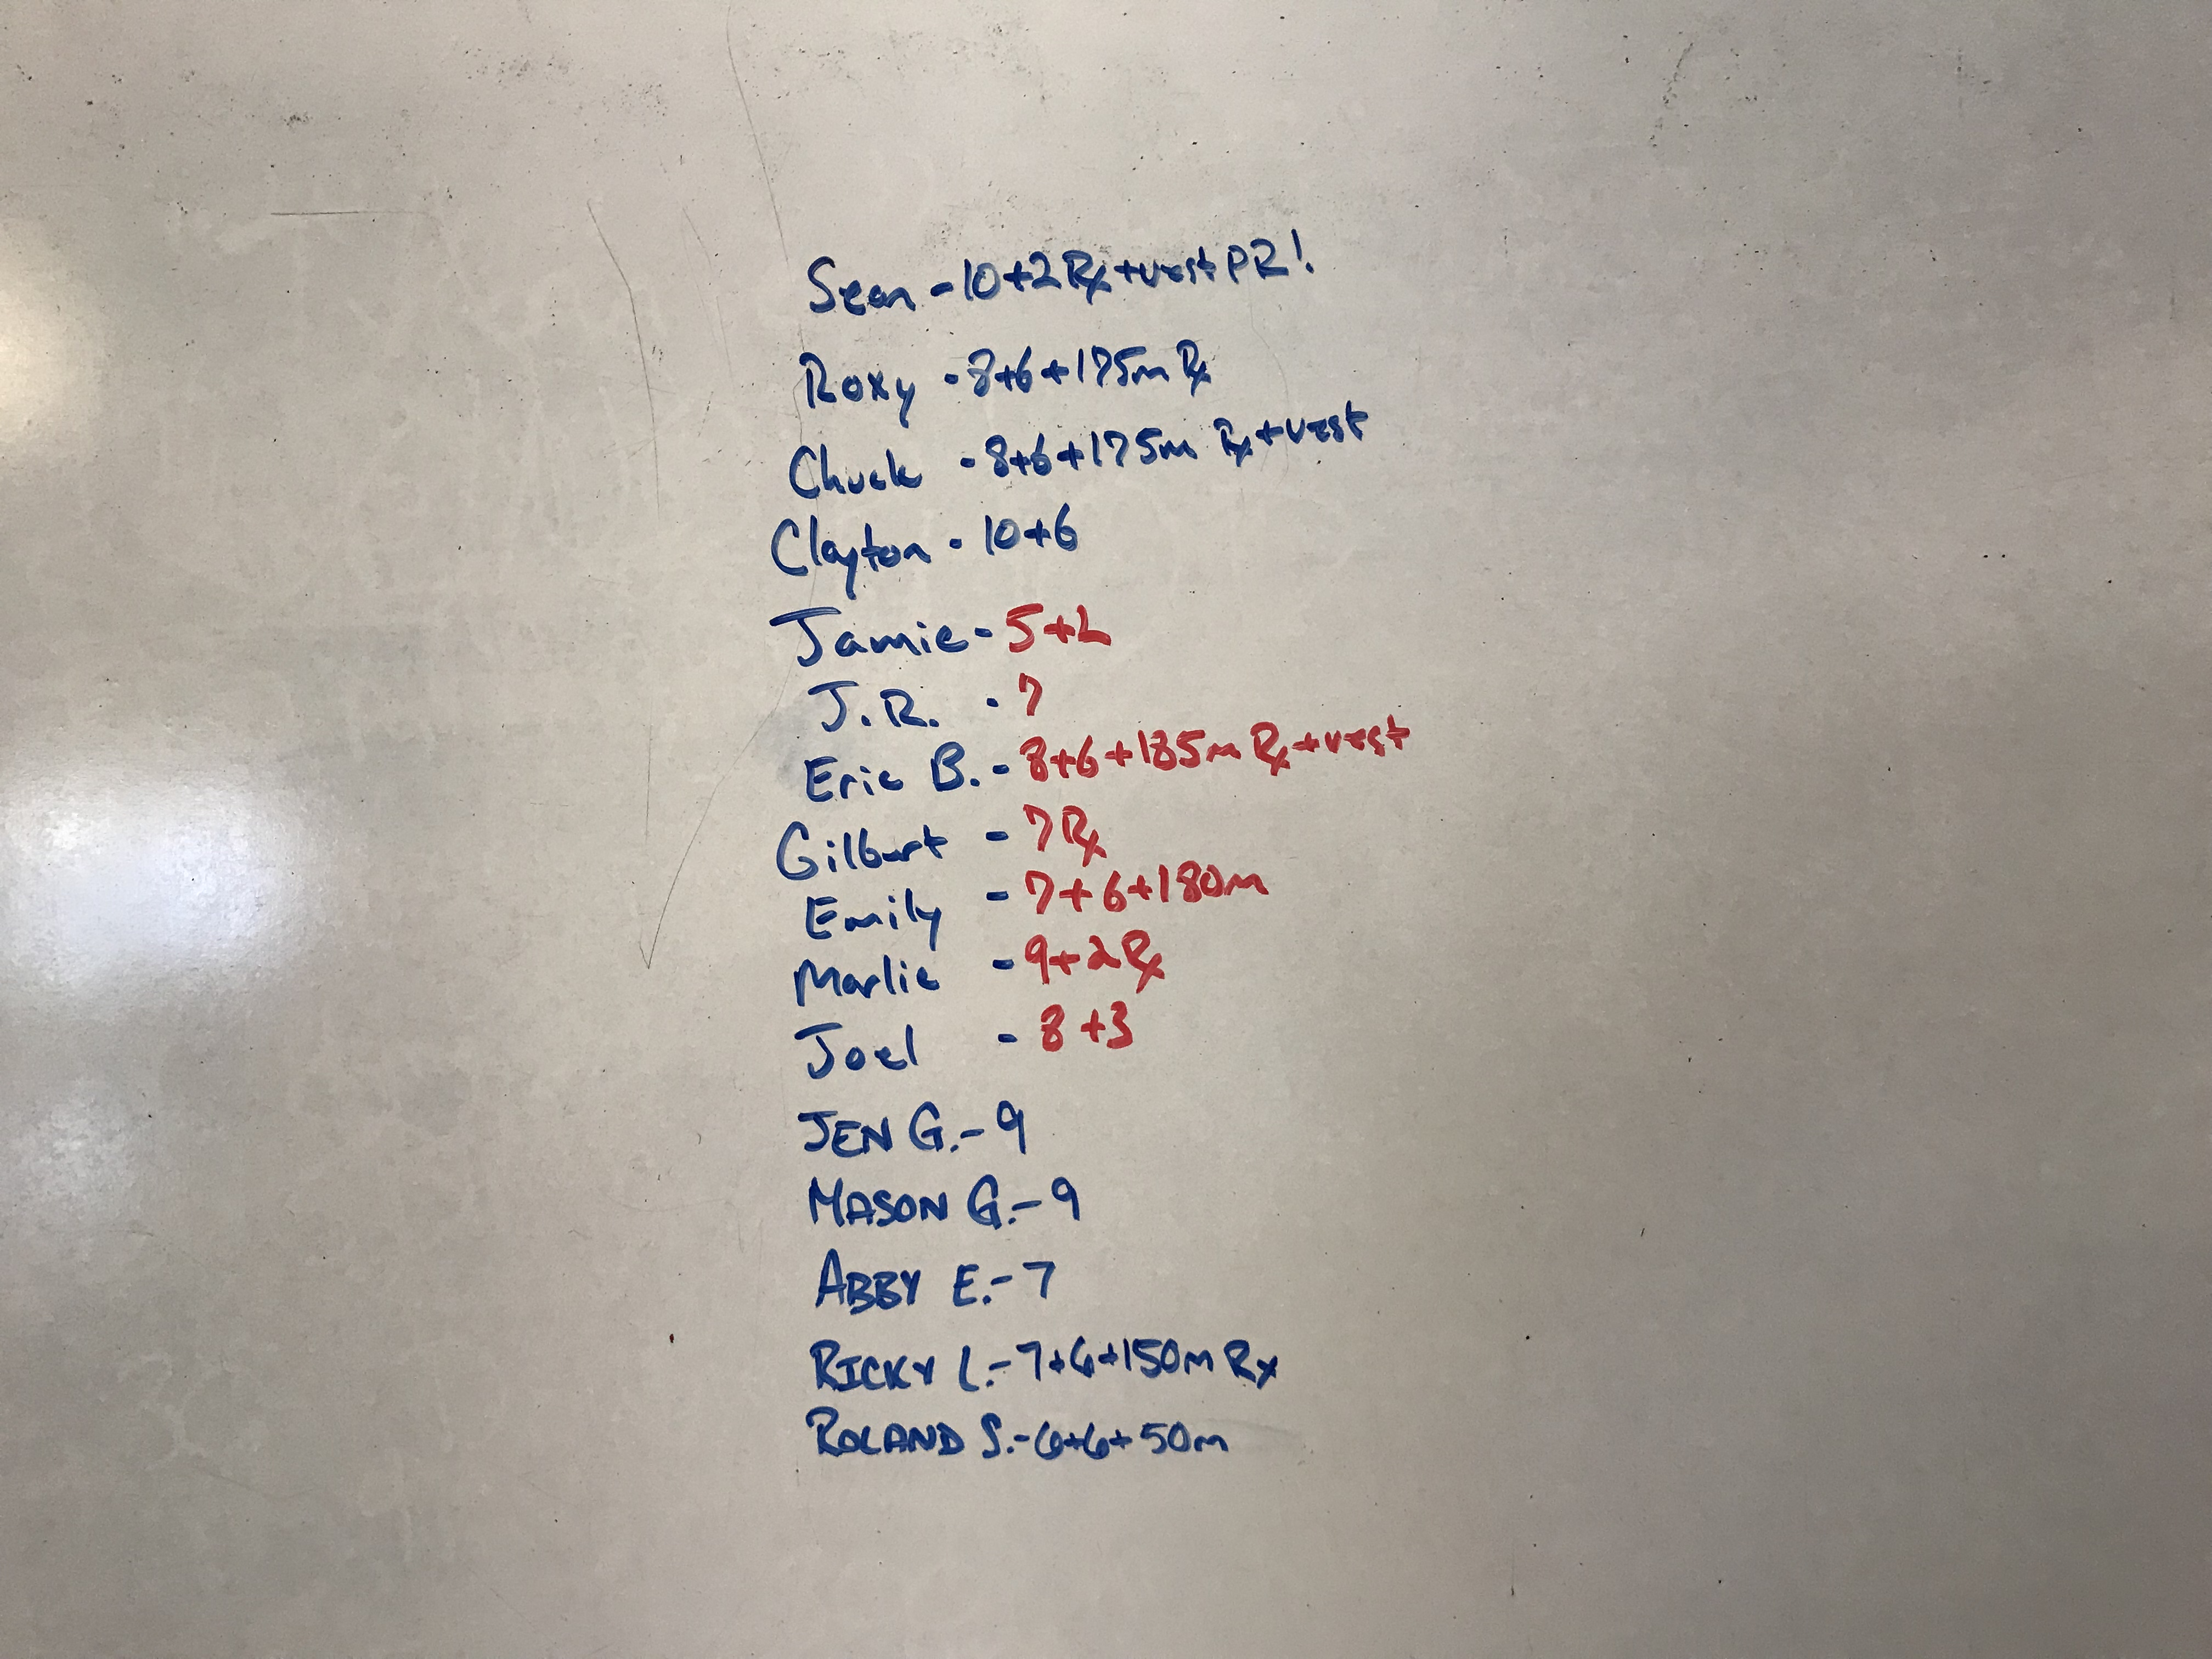 Sean - 10+2 Rx + vest PR!
Roxy - 8+6+175m Rx
Chuck - 8+6+175m Rx + vest
Clayton - 10+6
Jamie - 5+2
J.R. - 7
Eric B. - 8+6+185m Rx + vest
Gilbert - 7 Rx
Emily - 7+6+180m
Marlie - 9+2 Rx
Joel - 8+3
JEN G. - 9
MASON G. - 9
ABBY E. - 7
RICKY L. - 7+6+150m Rx
ROLAND S. - 6+6+50m